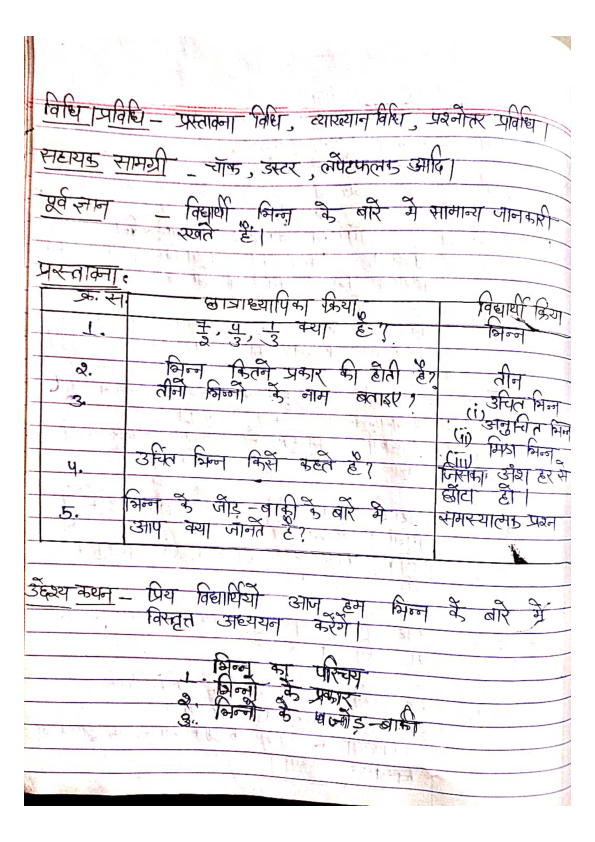 विधि/प्रविधि – प्रस्तावना विधि, व्याख्यान विधि, प्रश्नोतर प्रविधि।
सहायक सामग्री – चॉक, डस्टर, लपेटफलक आदि।
पूर्व ज्ञान – विद्यार्थी भिन्न के बारे में सामान्य जानकारी
रखते हैं।
प्रस्तावना :
क्र. स. छात्राध्यापिका क्रिया विद्यार्थी क्रिया
1. 7/2, 4/3, 1/3 क्या है? भिन्न
2. भिन्न कितने प्रकार की होती है? तीन
3. तीनो भिन्नो के नाम बताइए? (i) उचित भिन्न
(ii) अनुचित भिन्न
(iii) मिश्र भिन्न
4. उचित भिन्न किसे कहते है? जिसका अंश हर से
छोटा हो।
5. भिन्न के जोड़-बाकी के बारे मे समस्यात्मक प्रश्न
आप क्या जानते है?
उद्देश्य कथन – प्रिय विद्यार्थियों आज हम भिन्न के बारे में
विस्तृत अध्ययन करेंगे।
1. भिन्न का परिचय
2. भिन्नो के प्रकार
3. भिन्नो के जोड़-बाकी